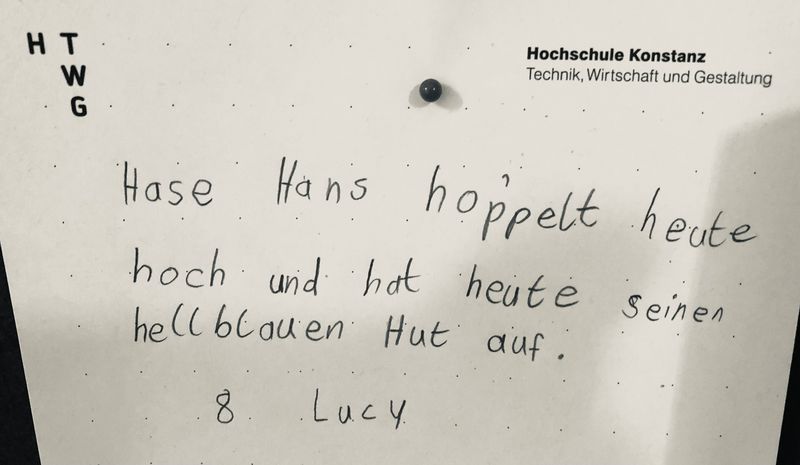 H T
W
G
Hochschule Konstanz
Technik, Wirtschaft und Gestaltung
Hase Hans hoppelt heute
hoch und hat heute seinen
hellblauen Hut auf.
8 Lucy